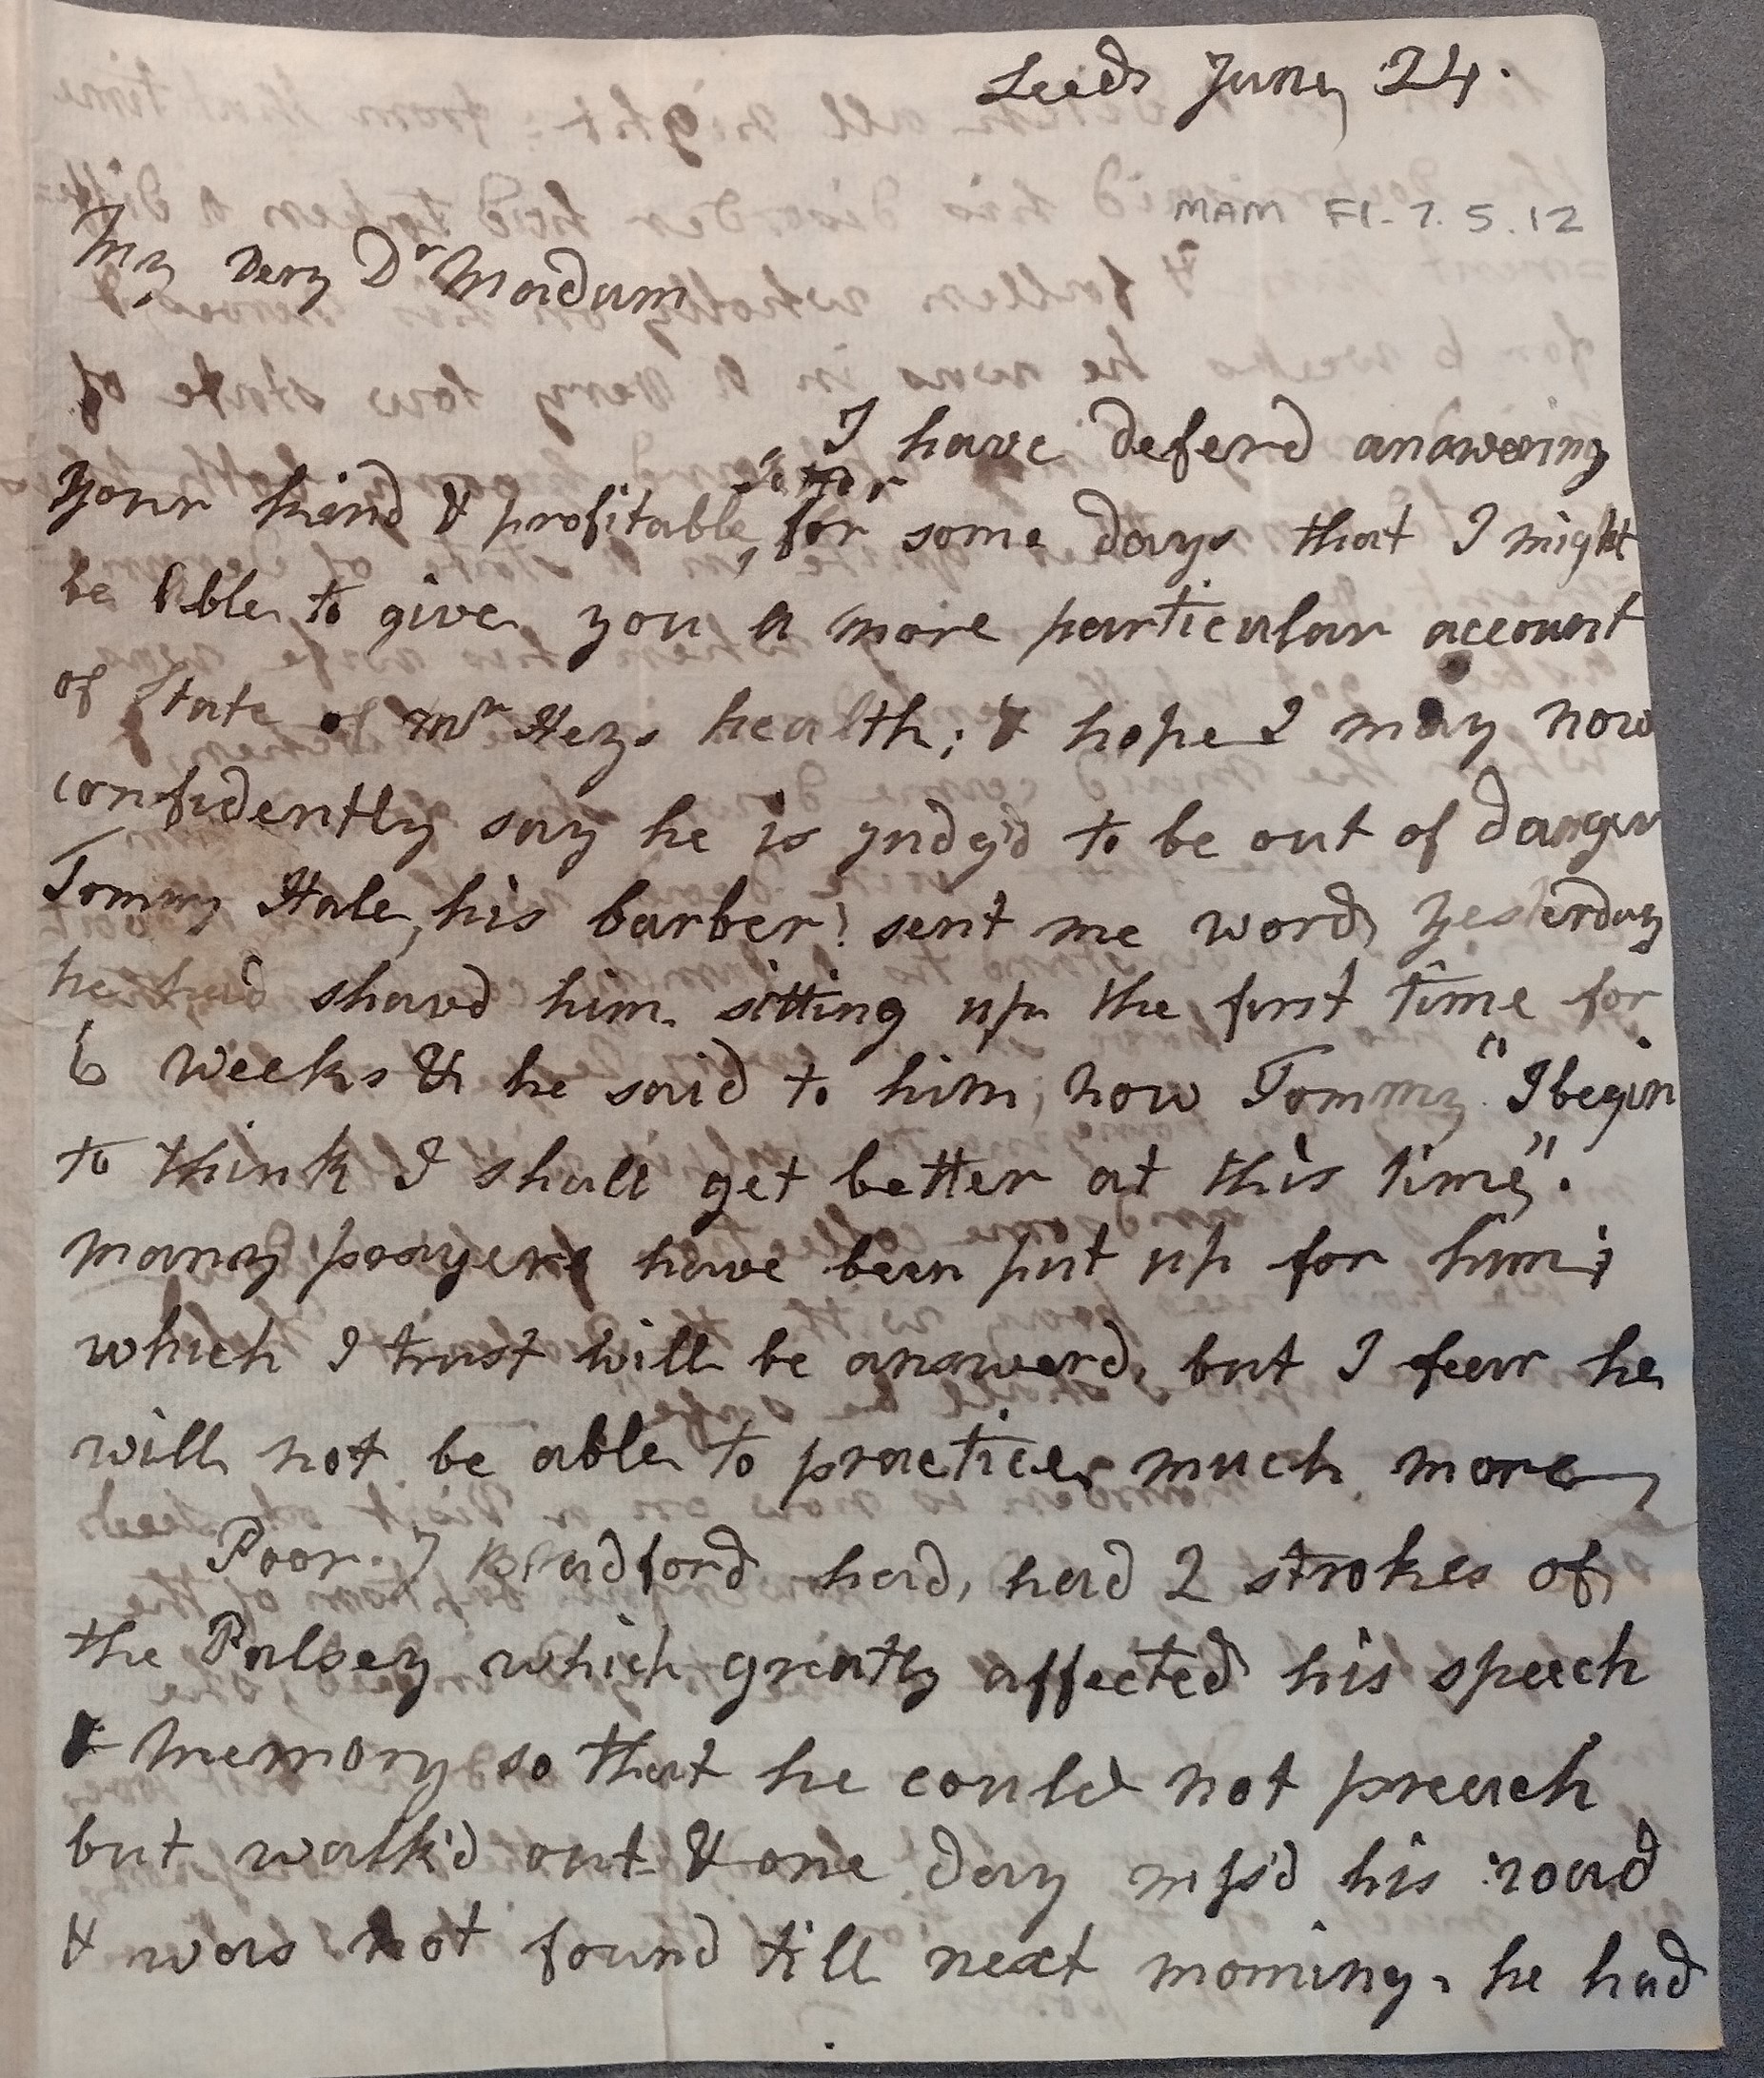 Leeds June 24.
MAM Fl-7.5.12
My very Dr Madam
I have deferd answering
letter
your kind & profitable, for some days that I might
be Able to give you a more particular account
of State of Mr Heys health; & hope I may now
confidently say he is judg'd to be out of danger
Tommy Hale, his barber! sent me word yesterday
he had shavd him sitting up the first time for
6 weeks & he said to him, now Tommy "I begin
to think I shall get better at this time".
many prayers have been put up for him;
which I trust will be answerd, but I fear he
will not be able to practice much more
Poor J Bradford had, had 2 strokes of
the Palsey which greatly affected his speech
& memory so that he could not preach
but walk'd out & one day miss'd his road
& was not found till next morning, he had